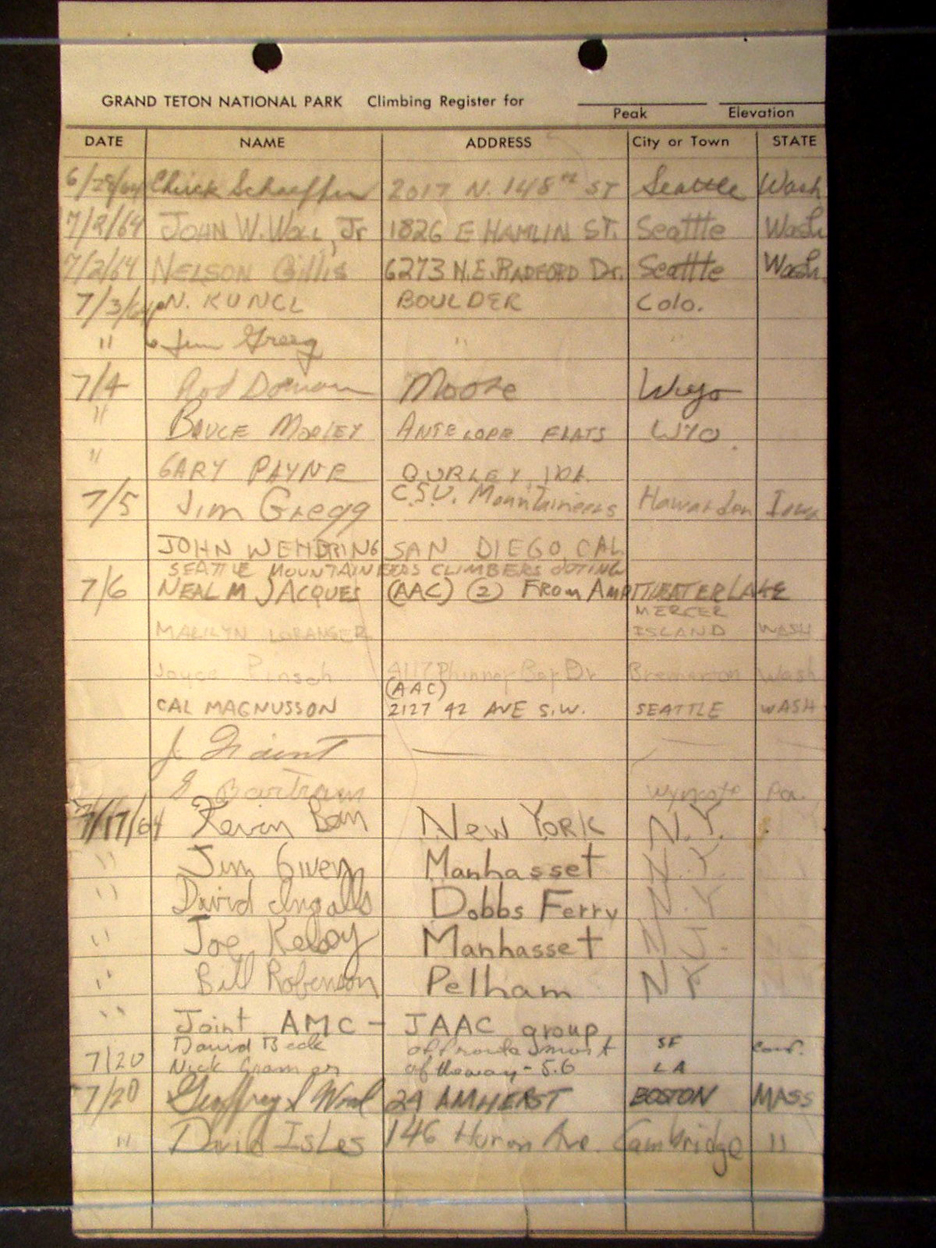 GRAND TETON NATIONAL PARK Climbing Register for
Peak Elevation
DATE NAME ADDRESS City or Town STATE
6/28/64 Chuck Schaeffer 2017 N. 148th ST Seattle Wash
7/2/64 JOHN W. WOLL, Jr 1826 E HAMLIN ST. Seattle Wash
7/2/64 NELSON Gillis 6273 N.E. RADFORD Dr. Seattle Wash.
7/3/64 N. KUNCL BOULDER Colo.
" Jim Gregg " "
7/4 Rod Dornan Moose Wyo
" BRUCE MORLEY ANTELOPE FLATS WYO.
" GARY PAYNE BURLEY, IDA.
7/5 Jim Gregg C.S.U. Mountaineers Hawarden Iowa
JOHN WENDRING SAN DIEGO, CAL.
SEATTLE MOUNTAINEERS CLIMBERS OUTING
7/6 NEAL M JACQUES (AAC) (2) FROM AMPITHEATER LAKE
MARILYN LORANGER MERCER ISLAND WASH
Joyce Bremerton Wash
(AAC)
CAL MAGNUSSON 2127 42 AVE S.W. SEATTLE WASH
J. —
G Bartram Wyncote Pa.
7/17/64 Kevin New York N.Y.
" Jim Manhasset N.Y.
" David Ingalls Dobbs Ferry N.Y.
" Joe Kelsey Manhasset N.J.
" Bill Robinson Pelham NY
" Joint AMC - JAAC group
David Beck off route most SF
7/20 Nick of the way - 5.6 LA
7/20 Geoffrey Wood 24 AMHERST BOSTON MASS
" David Isles 146 Huron Ave. Cambridge "